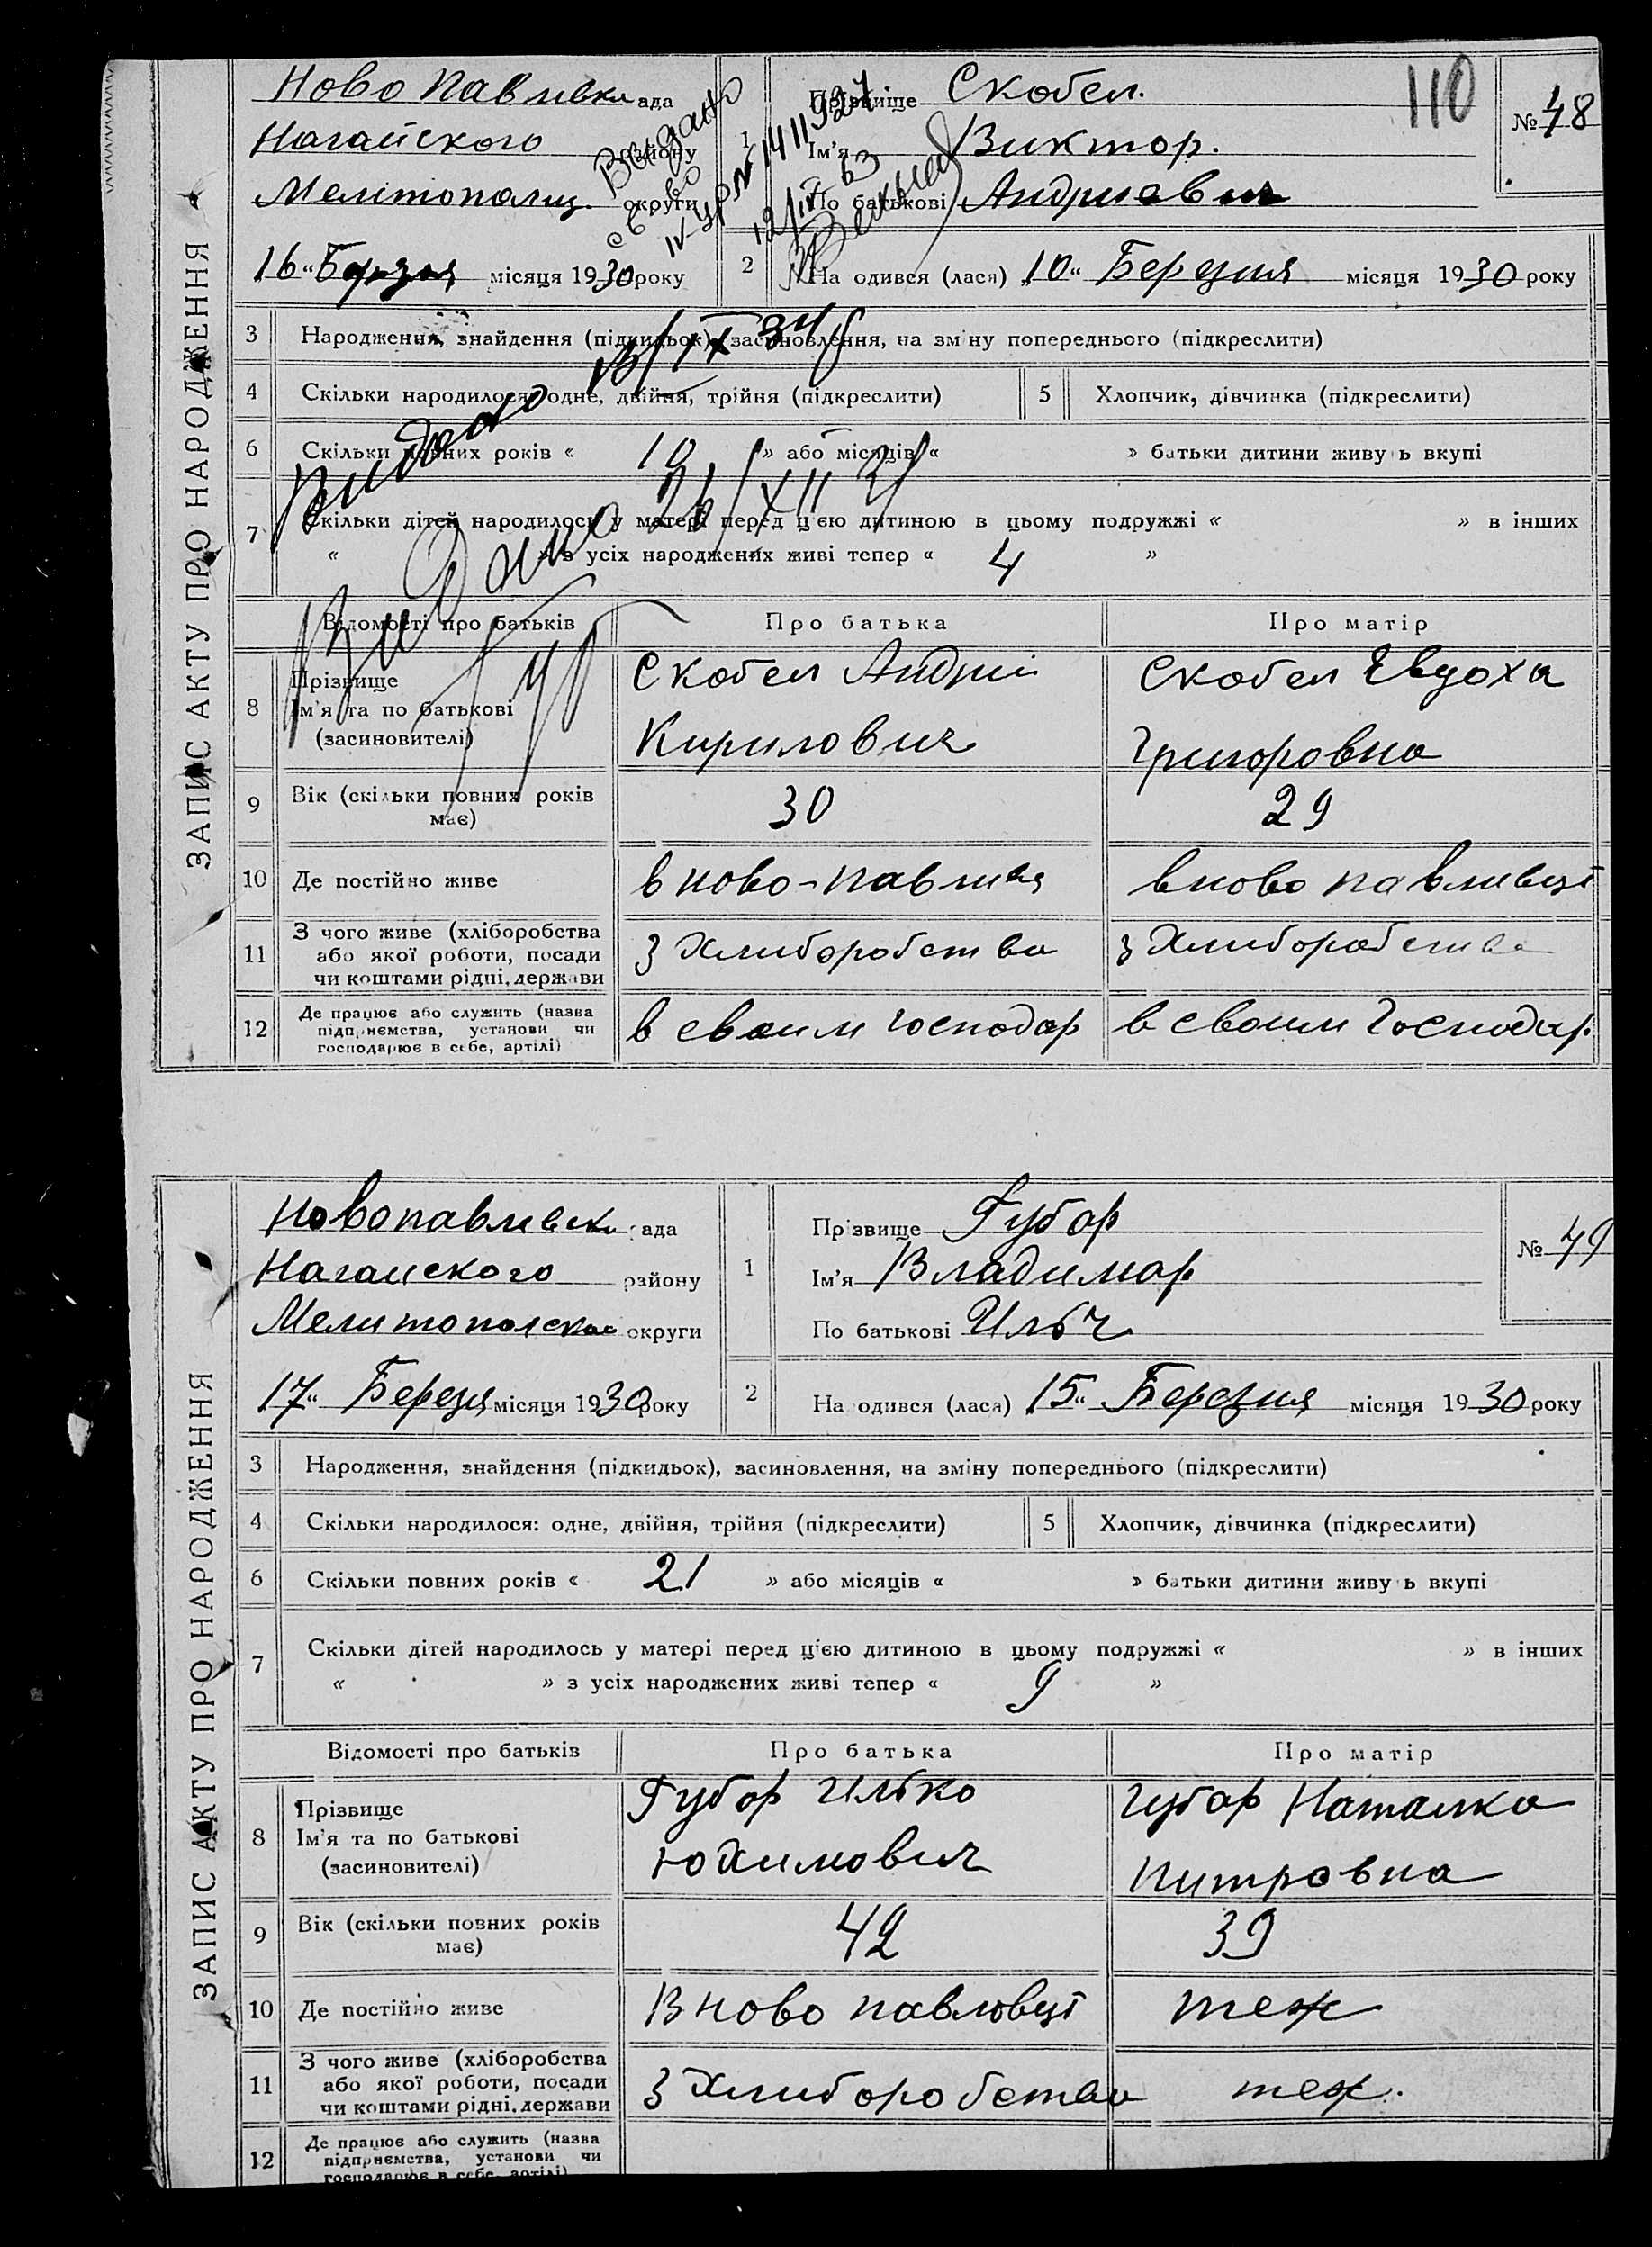 ЗАПИС АКТУ ПРО НАРОДЖЕННЯ
Ново Павливки ада
Нагайского району
Мелітопольщ. округи
16 " Березня місяця 1930 року
Видано
св-во
IV-УР № 1411927
12/IV 63
110
№ 48
1 Прізвище Скобел.
Ім'я Виктор.
По батькові Андриевич
2 На одився (лася) "10" Березня місяця 1930 року
3 Народження, знайдення (підкидьок), засиновлення, на зміну попереднього (підкреслити)
4 Скільки народилося: одне, двійня, трійня (підкреслити) 5 Хлопчик, дівчинка (підкреслити)
6 Скільки повних років « 10 » або місяців « » батьки дитини живу ь вкупі
7 Скільки дітей народилось у матері перед ц'єю дитиною в цьому подружжі « » в інших
« » з усіх народжених живі тепер « 4 »
Видано
Видано 26/XII
Відомості про батьків Про батька Про матір
8 Прізвище
Ім'я та по батькові
(засиновителі)
Скобел Андрій
Кирилович
Скобел Евдоха
Григоровна
9 Вік (скільки повних років має) 30 29
10 Де постійно живе в ново-павливц в ново павливці
11 З чого живе (хліборобства
або якої роботи, посади
чи коштами рідні, держави
З Хлиборобства З Хлиборобства
12 Де працює або служить (назва
підприємства, установи чи
господарює в себе, артілі)
в своим господар в своим Господар.
ЗАПИС АКТУ ПРО НАРОДЖЕННЯ
Новопавливски ада
Нагайского району
Мелитополскои округи
17 " Березня місяця 1930 року
№ 49
1 Прізвище Губар
Ім'я Владимар
По батькові Ильч
2 На одився (лася) "15" Березня місяця 1930 року
3 Народження, знайдення (підкидьок), засиновлення, на зміну попереднього (підкреслити)
4 Скільки народилося: одне, двійня, трійня (підкреслити) 5 Хлопчик, дівчинка (підкреслити)
6 Скільки повних років « 21 » або місяців « » батьки дитини живу ь вкупі
7 Скільки дітей народилось у матері перед ц'єю дитиною в цьому подружжі « » в інших
« » з усіх народжених живі тепер « 9 »
Відомості про батьків Про батька Про матір
8 Прізвище
Ім'я та по батькові
(засиновителі)
Губар Илько
Юхимович
Губар Наталка
Питровна
9 Вік (скільки повних років має) 42 39
10 Де постійно живе В ново павловці теж
11 З чого живе (хліборобства
або якої роботи, посади
чи коштами рідні, держави
З Хлиборобства теж.
12 Де працює або служить (назва
підприємства, установи чи
господарює в себе, артілі)